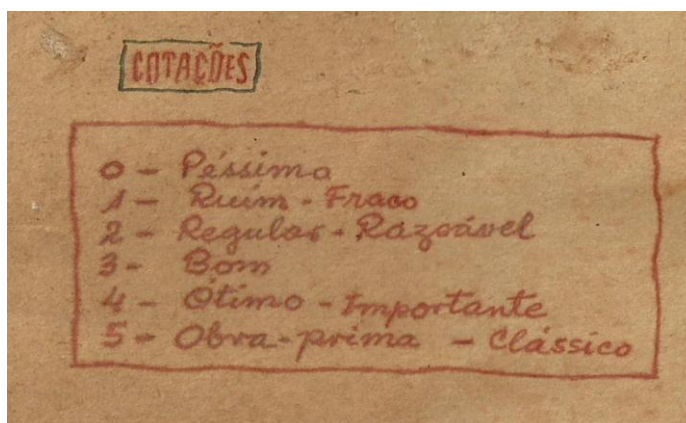 COTAÇÕES
0 - Péssimo
1 - Ruím - Fraco
2 - Regular - Razoável
3 - Bom
4 - Ótimo - Importante
5 - Obra-prima - Clássico